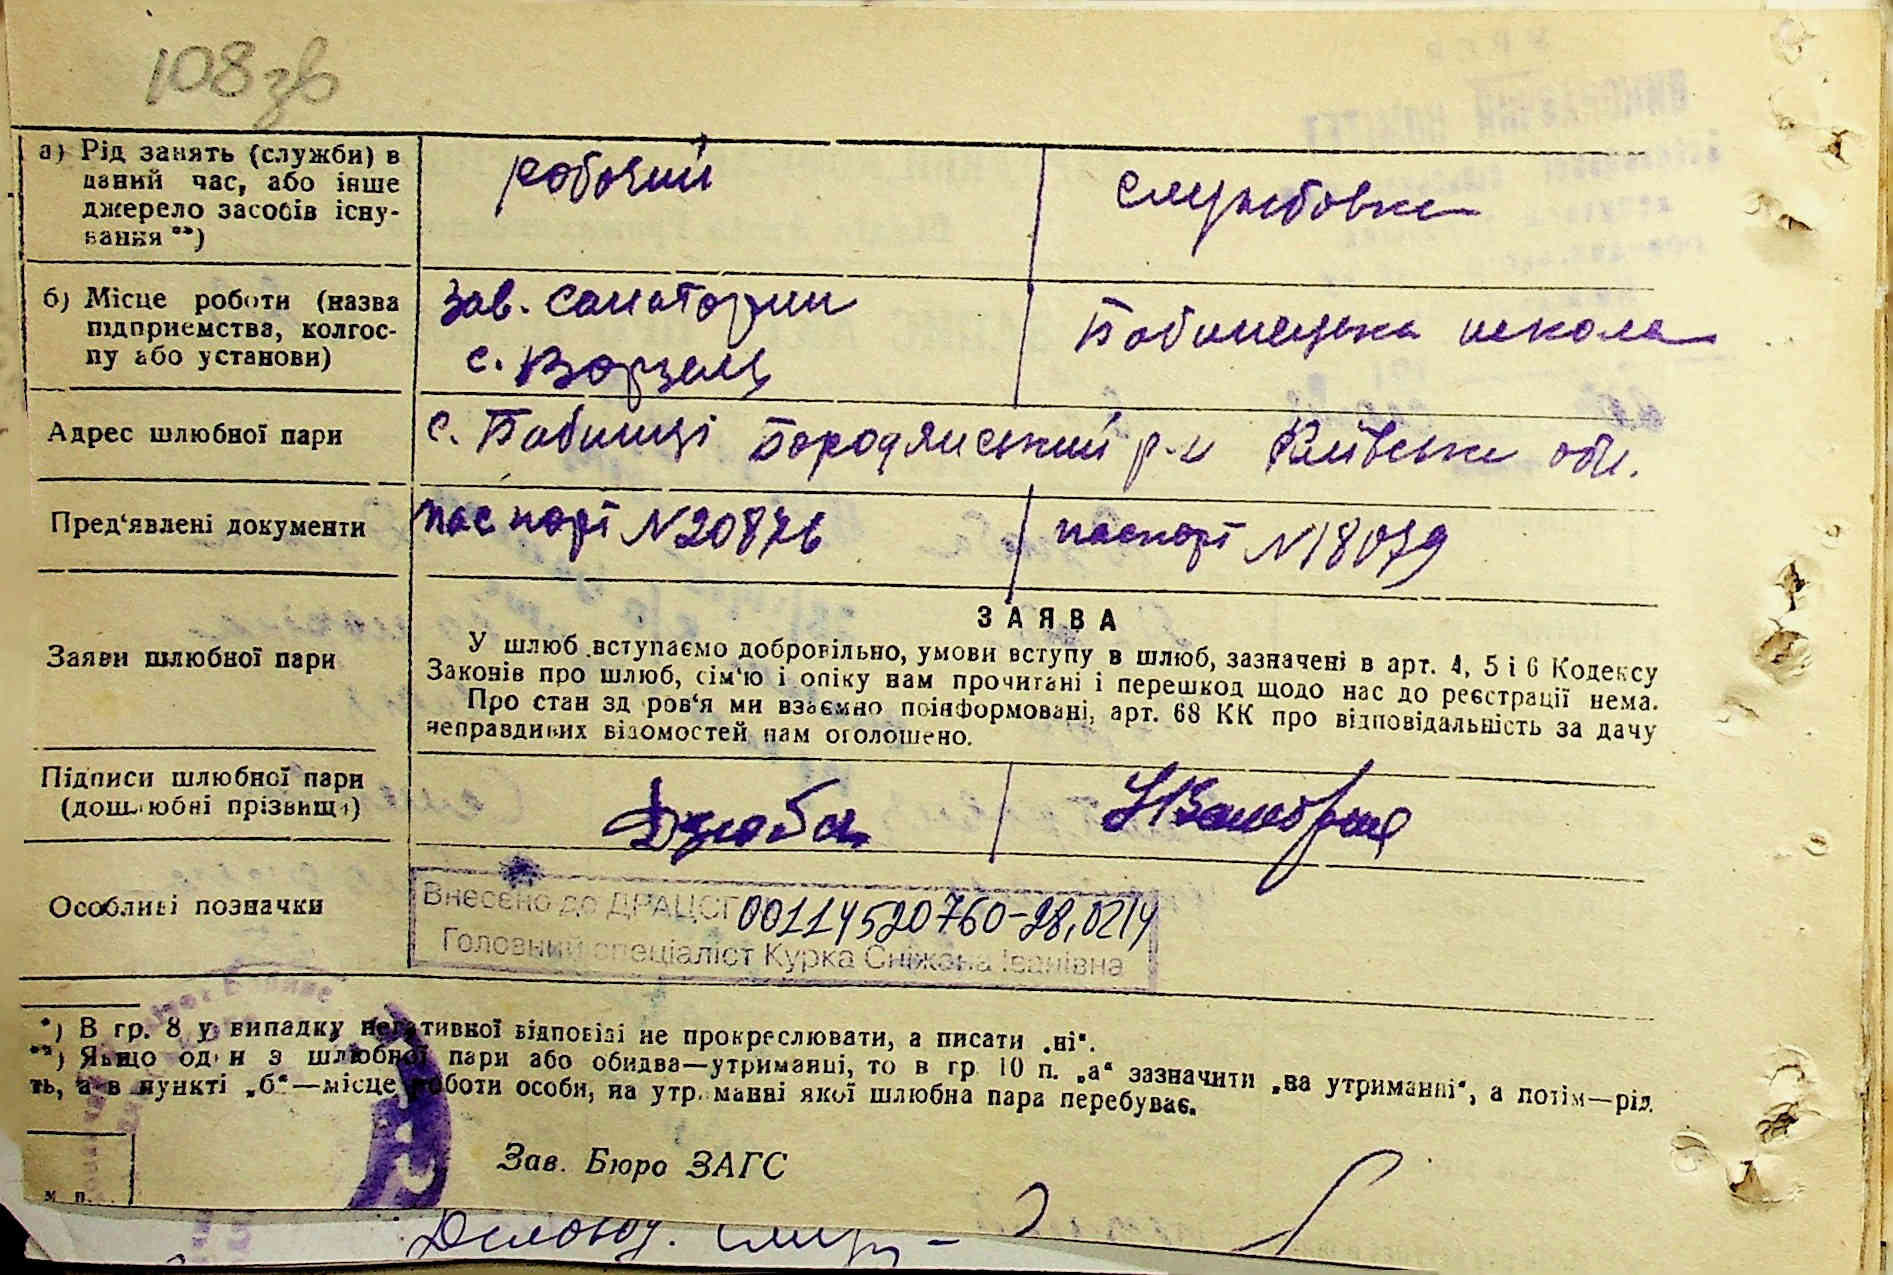 108 зв
а) Рід занять (служби) в робочий службовка
даний час, або інше
джерело засобів існу-
вання **)
б) Місце роботи (назва зав. санатории Бабинецька школа
підприемства, колгос- с. Ворзель
пу або установи)
Адрес шлюбної пари с. Бабинці Бородянський р-н Київська обл.
Пред'явлені документи паспорт N 20876 паспорт N 18079
ЗАЯВА
Заяви шлюбної пари У шлюб вступаємо добровільно, умови вступу в шлюб, зазначені в арт. 4, 5 і 6 Кодексу
Законів про шлюб, сім'ю і опіку нам прочитані і перешкод щодо нас до реєстрації нема.
Про стан здоров'я ми взаємно поінформовані, арт. 68 КК про відповідальність за дачу
неправдивих відомостей нам оголошено.
Підписи шлюбної пари Дзюба
(дошлюбні прізвища)
Особливі позначки Внесено до ДРАЦСГ 00114520760-28,0214
Головний спеціаліст Курка Сніжана Іванівна
*) В гр. 8 у випадку негативної відповіді не прокреслювати, а писати „ні“.
**) Якщо один з шлюбної пари або обидва—утриманці, то в гр. 10 п. „а“ зазначити „на утриманні“, а потім—рід
ть, а в пункті „б“—місце роботи особи, на утриманні якої шлюбна пара перебуває.
Зав. Бюро ЗАГС
м. п.